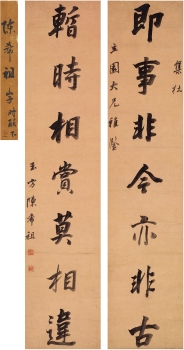 即事非今亦非古
集杜
立園大兄雅鑒
暫時相賞莫相違
玉方陳希祖
陳希祖字